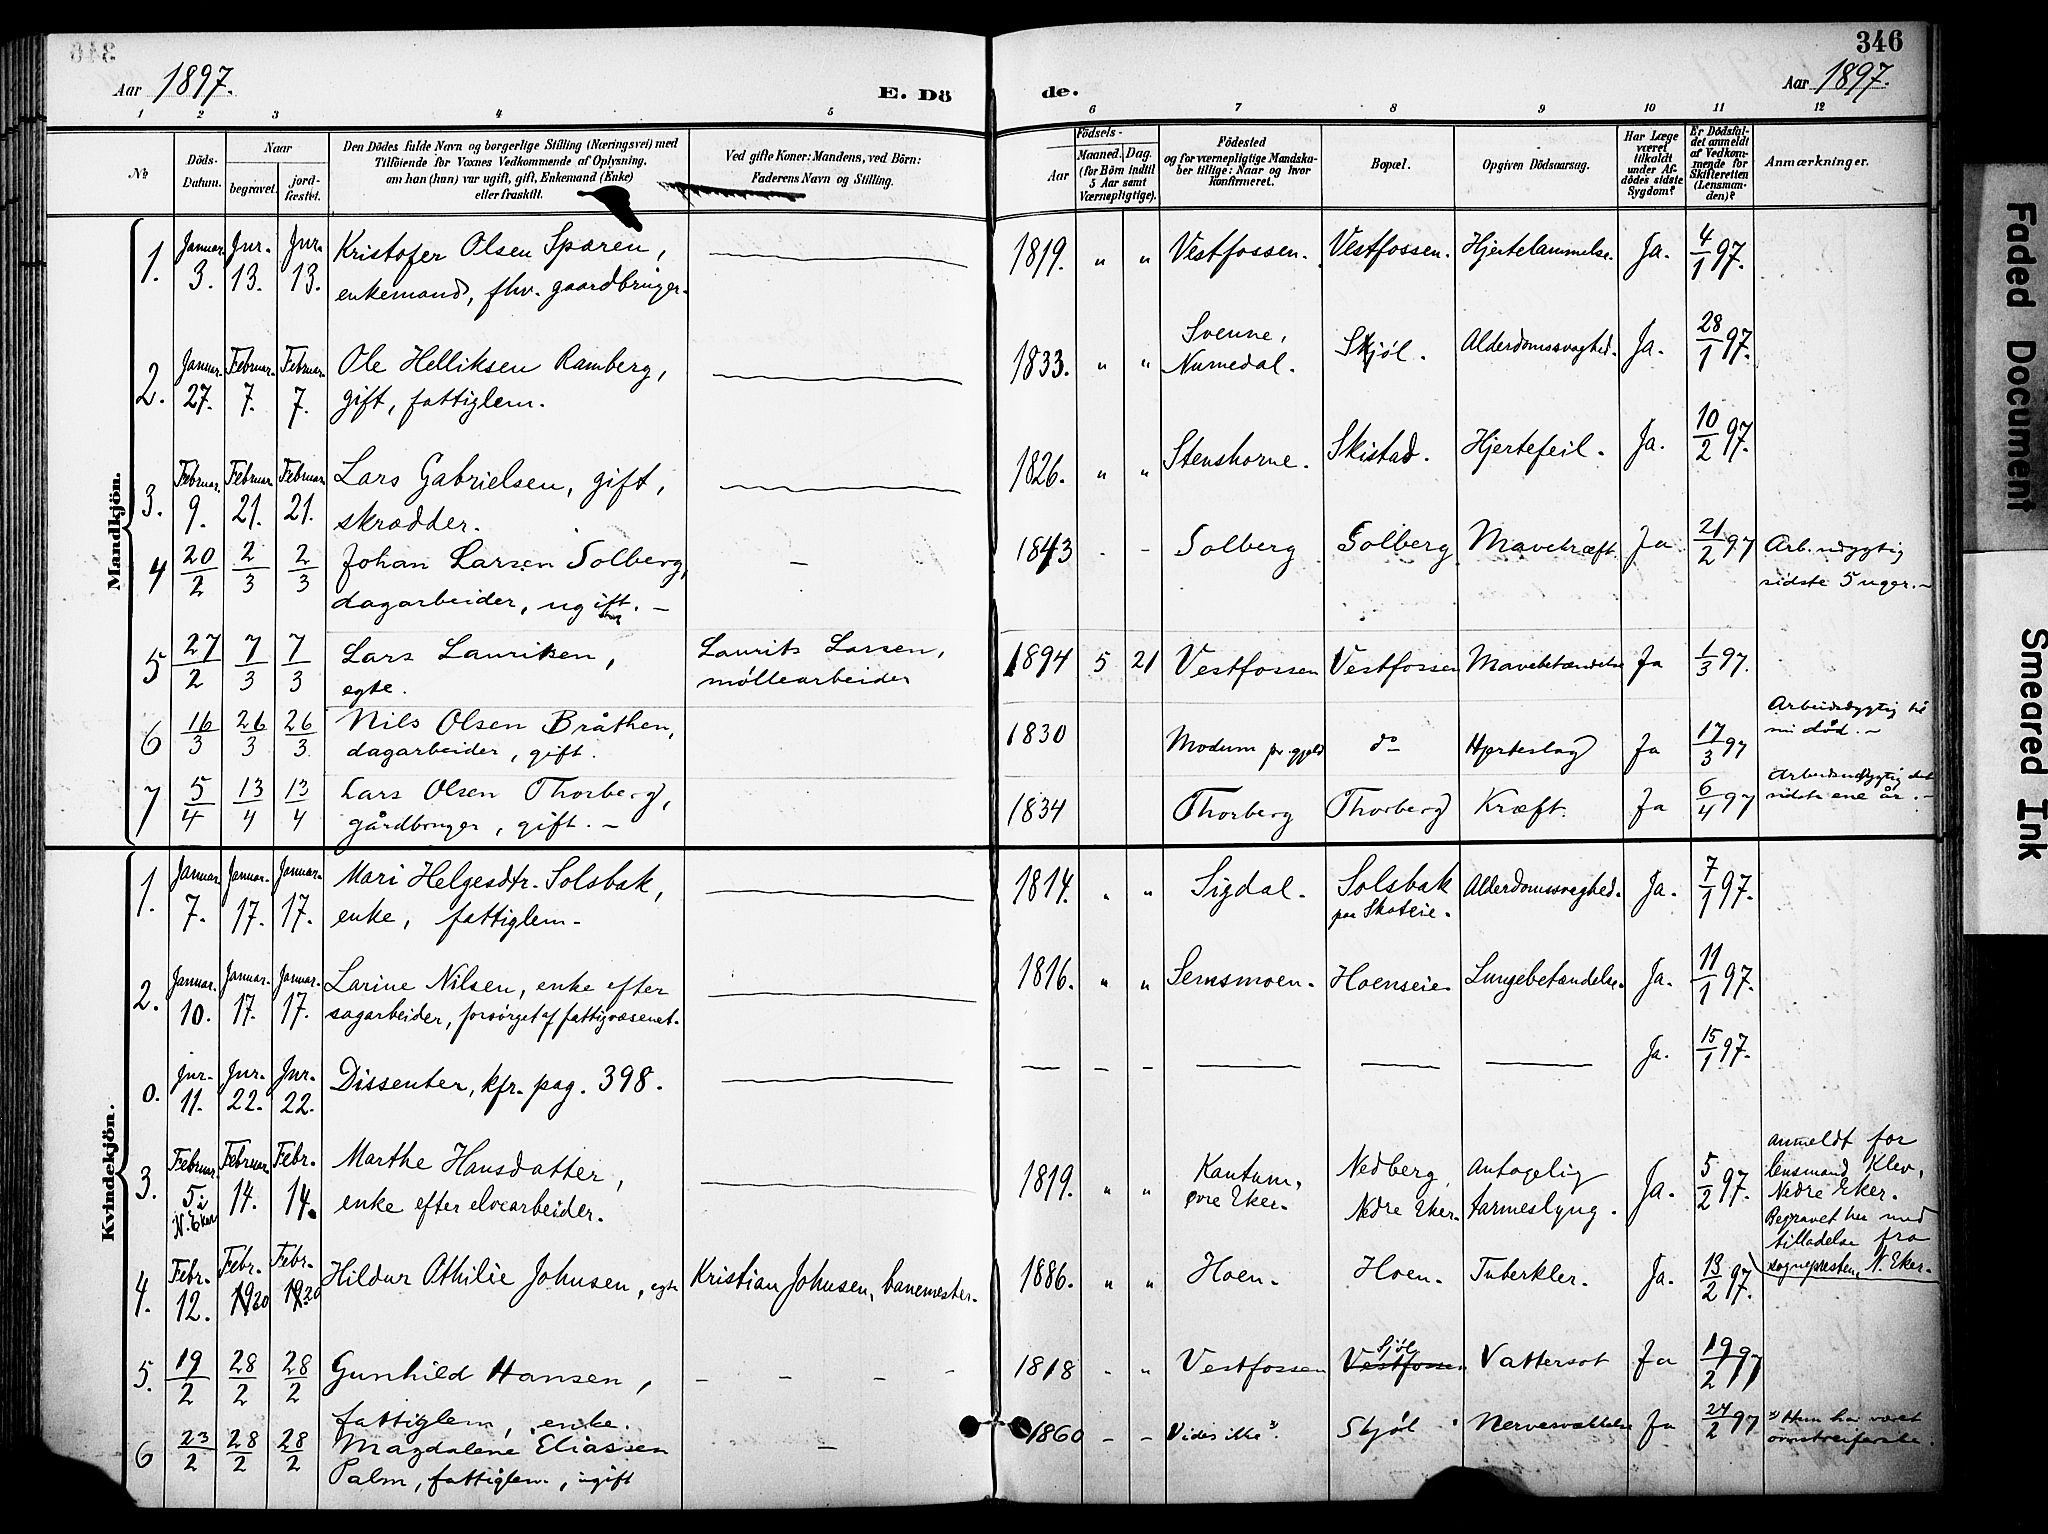 346
Aar 1897.
E. Dö
de.
Aar 1897.
1 2 3 4 5 6 7 8 9 10 11 12
No
Döds-
Datum.
Naar
begravet.
jord-
fæstet.
Den Dödes fulde Navn og borgerlige Stilling (Næringsvei) med
Tilföiende for Voxnes Vedkommende af Oplysning,
om han (hun) var ugift, gift, Enkemand (Enke)
eller fraskilt.
Ved gifte Koner: Mandens, ved Börn:
Faderens Navn og Stilling.
Födsels-
Aar
Maaned. Dag.
(for Börn indtil
5 Aar samt
Værnepligtige).
Födested
og for værnepligtige Mandska-
ber tillige: Naar og hvor
konfirmeret.
Bopæl.
Opgiven Dödsaarsag.
Har Læge
været
tilkaldt
under Af-
dödes sidste
Sygdom?
Er Dödsfal-
det anmeldt
af Vedkom-
mende for
Skifteretten
(Lensman-
den)?
Anmærkninger.
Mandkjön.
1. Januar 3. Jnr. 13. Jnr. 13. Kristofer Olsen Sparen,
enkemand, fhv. gaardbruger.
1819. " " Vestfossen. Vestfossen. Hjertelammelse. Ja. 4/1 97.
2. Januar 27. Februar 7. Februar 7. Ole Helliksen Ramberg,
gift, fattiglem.
1833. " " Svenne,
Numedal. Skjøl. Alderdomssvaghed. Ja. 28/1 97.
3. Februar 9. Februar 21. Februar 21. Lars Gabrielsen, gift,
skrædder.
1826. " " Stenshorne. Skistad. Hjertefeil. Ja. 10/2 97.
4 20/2 2/3 2/3 Johan Larsen Solberg,
dagarbeider, ugift. –
1843 - - Solberg Solberg Mavekræft. Ja 21/2 97 Arb.udygtig
sidste 5 uger. –
5 27/2 7/3 7/3 Lars Lauritsen,
egte.
Laurits Larsen,
møllearbeider
1894 5 21 Vestfossen Vestfossen Mavebetændelse Ja 1/3 97.
6 16/3 26/3 26/3 Nils Olsen Bråthen,
dagarbeider, gift.
1830 Modum pr.gjeld do Hjerteslag Ja 17/3 97 Arbeidsdygtig til
sin død. –
7 5/4 13/4 13/4 Lars Olsen Thorberg,
gårdbruger, gift. –
1834 Thorberg Thorberg Kræft. Ja 6/4 97 Arbeidsudygtig det
sidste ene år. –
Kvindekjön.
1. Januar 7. Januar. 17. Januar. 17. Mari Helgesdtr. Solsbak,
enke, fattiglem.
1814. " " Sigdal. Solsbak
paa Skoteie. Alderdomssvaghed. Ja. 7/1 97.
2. Januar. 10. Januar. 17. Januar. 17. Larine Nilsen, enke efter
sagarbeider, forsørget af fattigvæsenet.
1816. " " Semsmoen. Hoenseie Lungebetændelse. Ja. 11/1 97.
0. Jnr. 11. Jnr. 22. Jnr. 22. Dissenter, kfr. pag. 398.
Ja. 15/1 97.
3. Februar. 5 i
N. Eker Februar 14. Febr. 14. Marthe Hansdatter,
enke efter elvearbeider.
1819. " " Kantum,
øvre Eker. Nedberg,
Nedre Eker. Antagelig
tarmeslyng. Ja. 5/2 97.
anmeldt for
lensmand Klev,
Nedre Eker.
Begravet her med
tilladelse fra
sognepræsten, N. Eker.
4. Febr. 12. Febr. 20 Febr. 20 Hildur Othilie Johnsen, egte Kristian Johnsen, banemester.
1886. " " Hoen. Hoen. Tuberkler. Ja. 13/2 97.
5. 19/2 28/2 28/2 Gunhild Hansen,
fattiglem, enke.
1818 " " Vestfossen Sjøl
Vestfossen Vattersot Ja 19/2 97
6 23/2 28/2 28/2 Magdalene Eliassen
Palm, fattiglem, ugift
1860 - - Vides ikke x) Skjøl Nervesvækkelse Ja 24/2 97 x) Hun har været
omstreiferske.
Faded Document
Smeared Ink